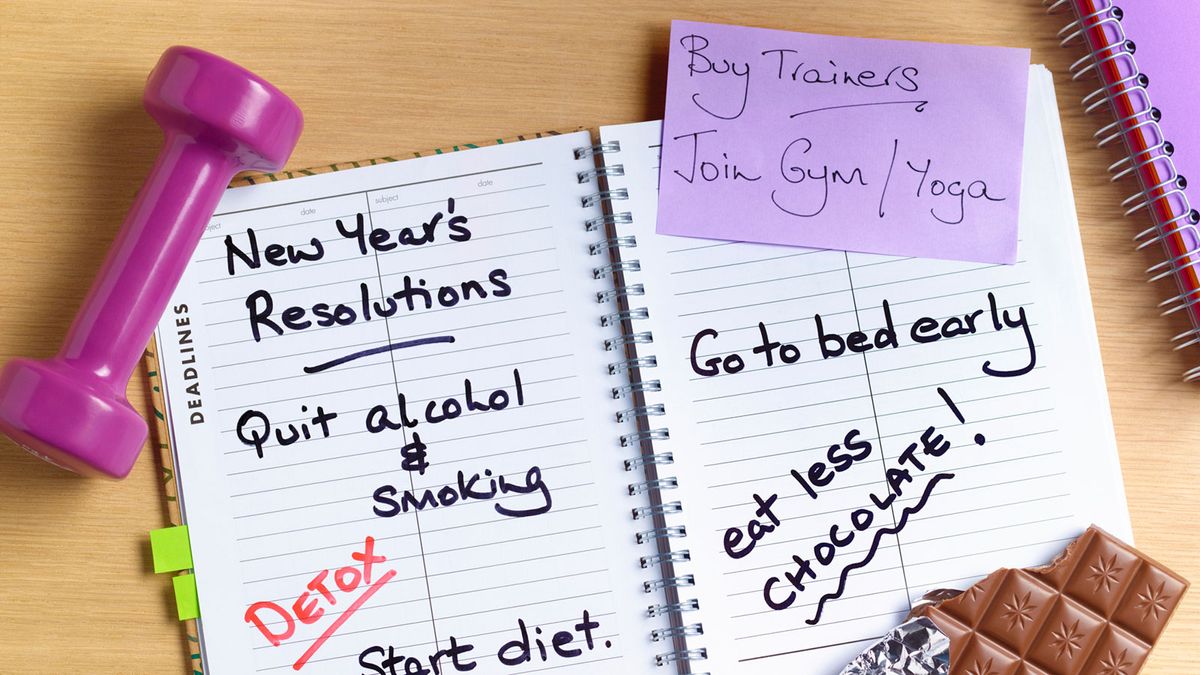 subject
date
subject
date
DEADLINES
New Year's
Resolutions
Quit alcohol
&
smoking
DETOX
Start diet.
Buy Trainers
Join Gym / Yoga
Go to bed early
eat less
CHOCOLATE!